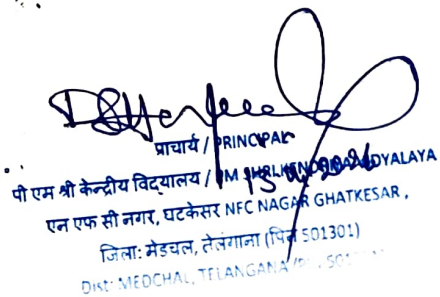 प्राचार्य / PRINCIPAL
पी एम श्री केन्द्रीय विद्यालय / PM SHRI KENDRIYA VIDYALAYA
एन एफ सी नगर, घटकेसर NFC NAGAR GHATKESAR,
जिला: मेडचल, तेलंगाना (पिन 501301)
Dist: MEDCHAL, TELANGANA